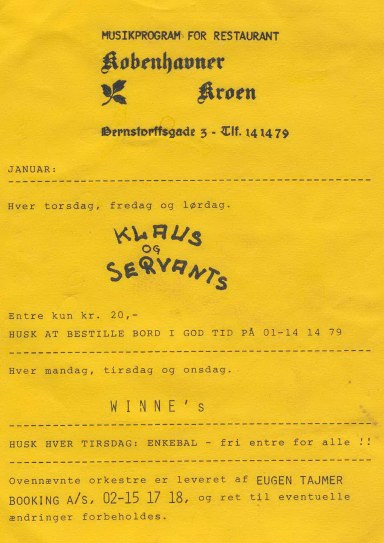 MUSIKPROGRAM FOR RESTAURANT
Københavner
Kroen
Bernstorffsgade 3 - Tlf. 14 14 79
JANUAR:
Hver torsdag, fredag og lørdag.
KLAUS
OG
SERVANTS
Entre kun kr. 20,-
HUSK AT BESTILLE BORD I GOD TID PÅ 01-14 14 79
Hver mandag, tirsdag og onsdag.
WINNE's
HUSK HVER TIRSDAG: ENKEBAL - fri entre for alle !!
Ovennævnte orkestre er leveret af EUGEN TAJMER
BOOKING A/S, 02-15 17 18, og ret til eventuelle
ændringer forbeholdes.